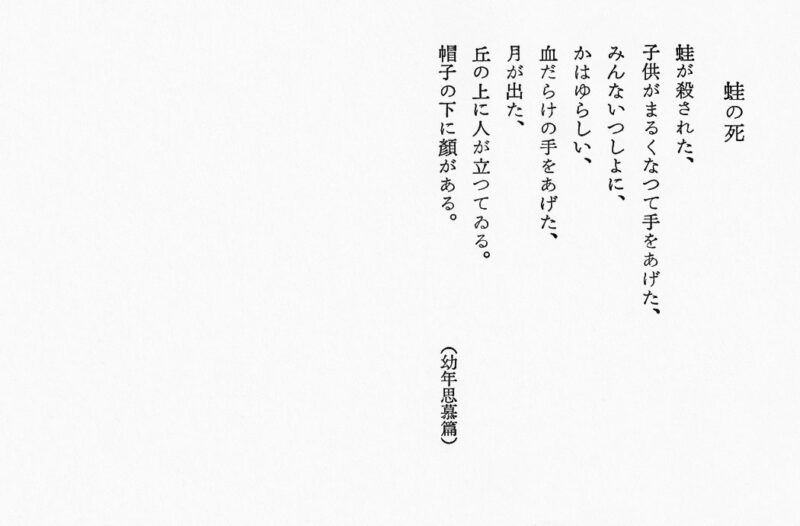 蛙の死
蛙が殺された、
子供がまるくなつて手をあげた、
みんないつしよに、
かはゆらしい、
血だらけの手をあげた、
月が出た、
丘の上に人が立つてゐる。
帽子の下に顏がある。
（幼年思慕篇）